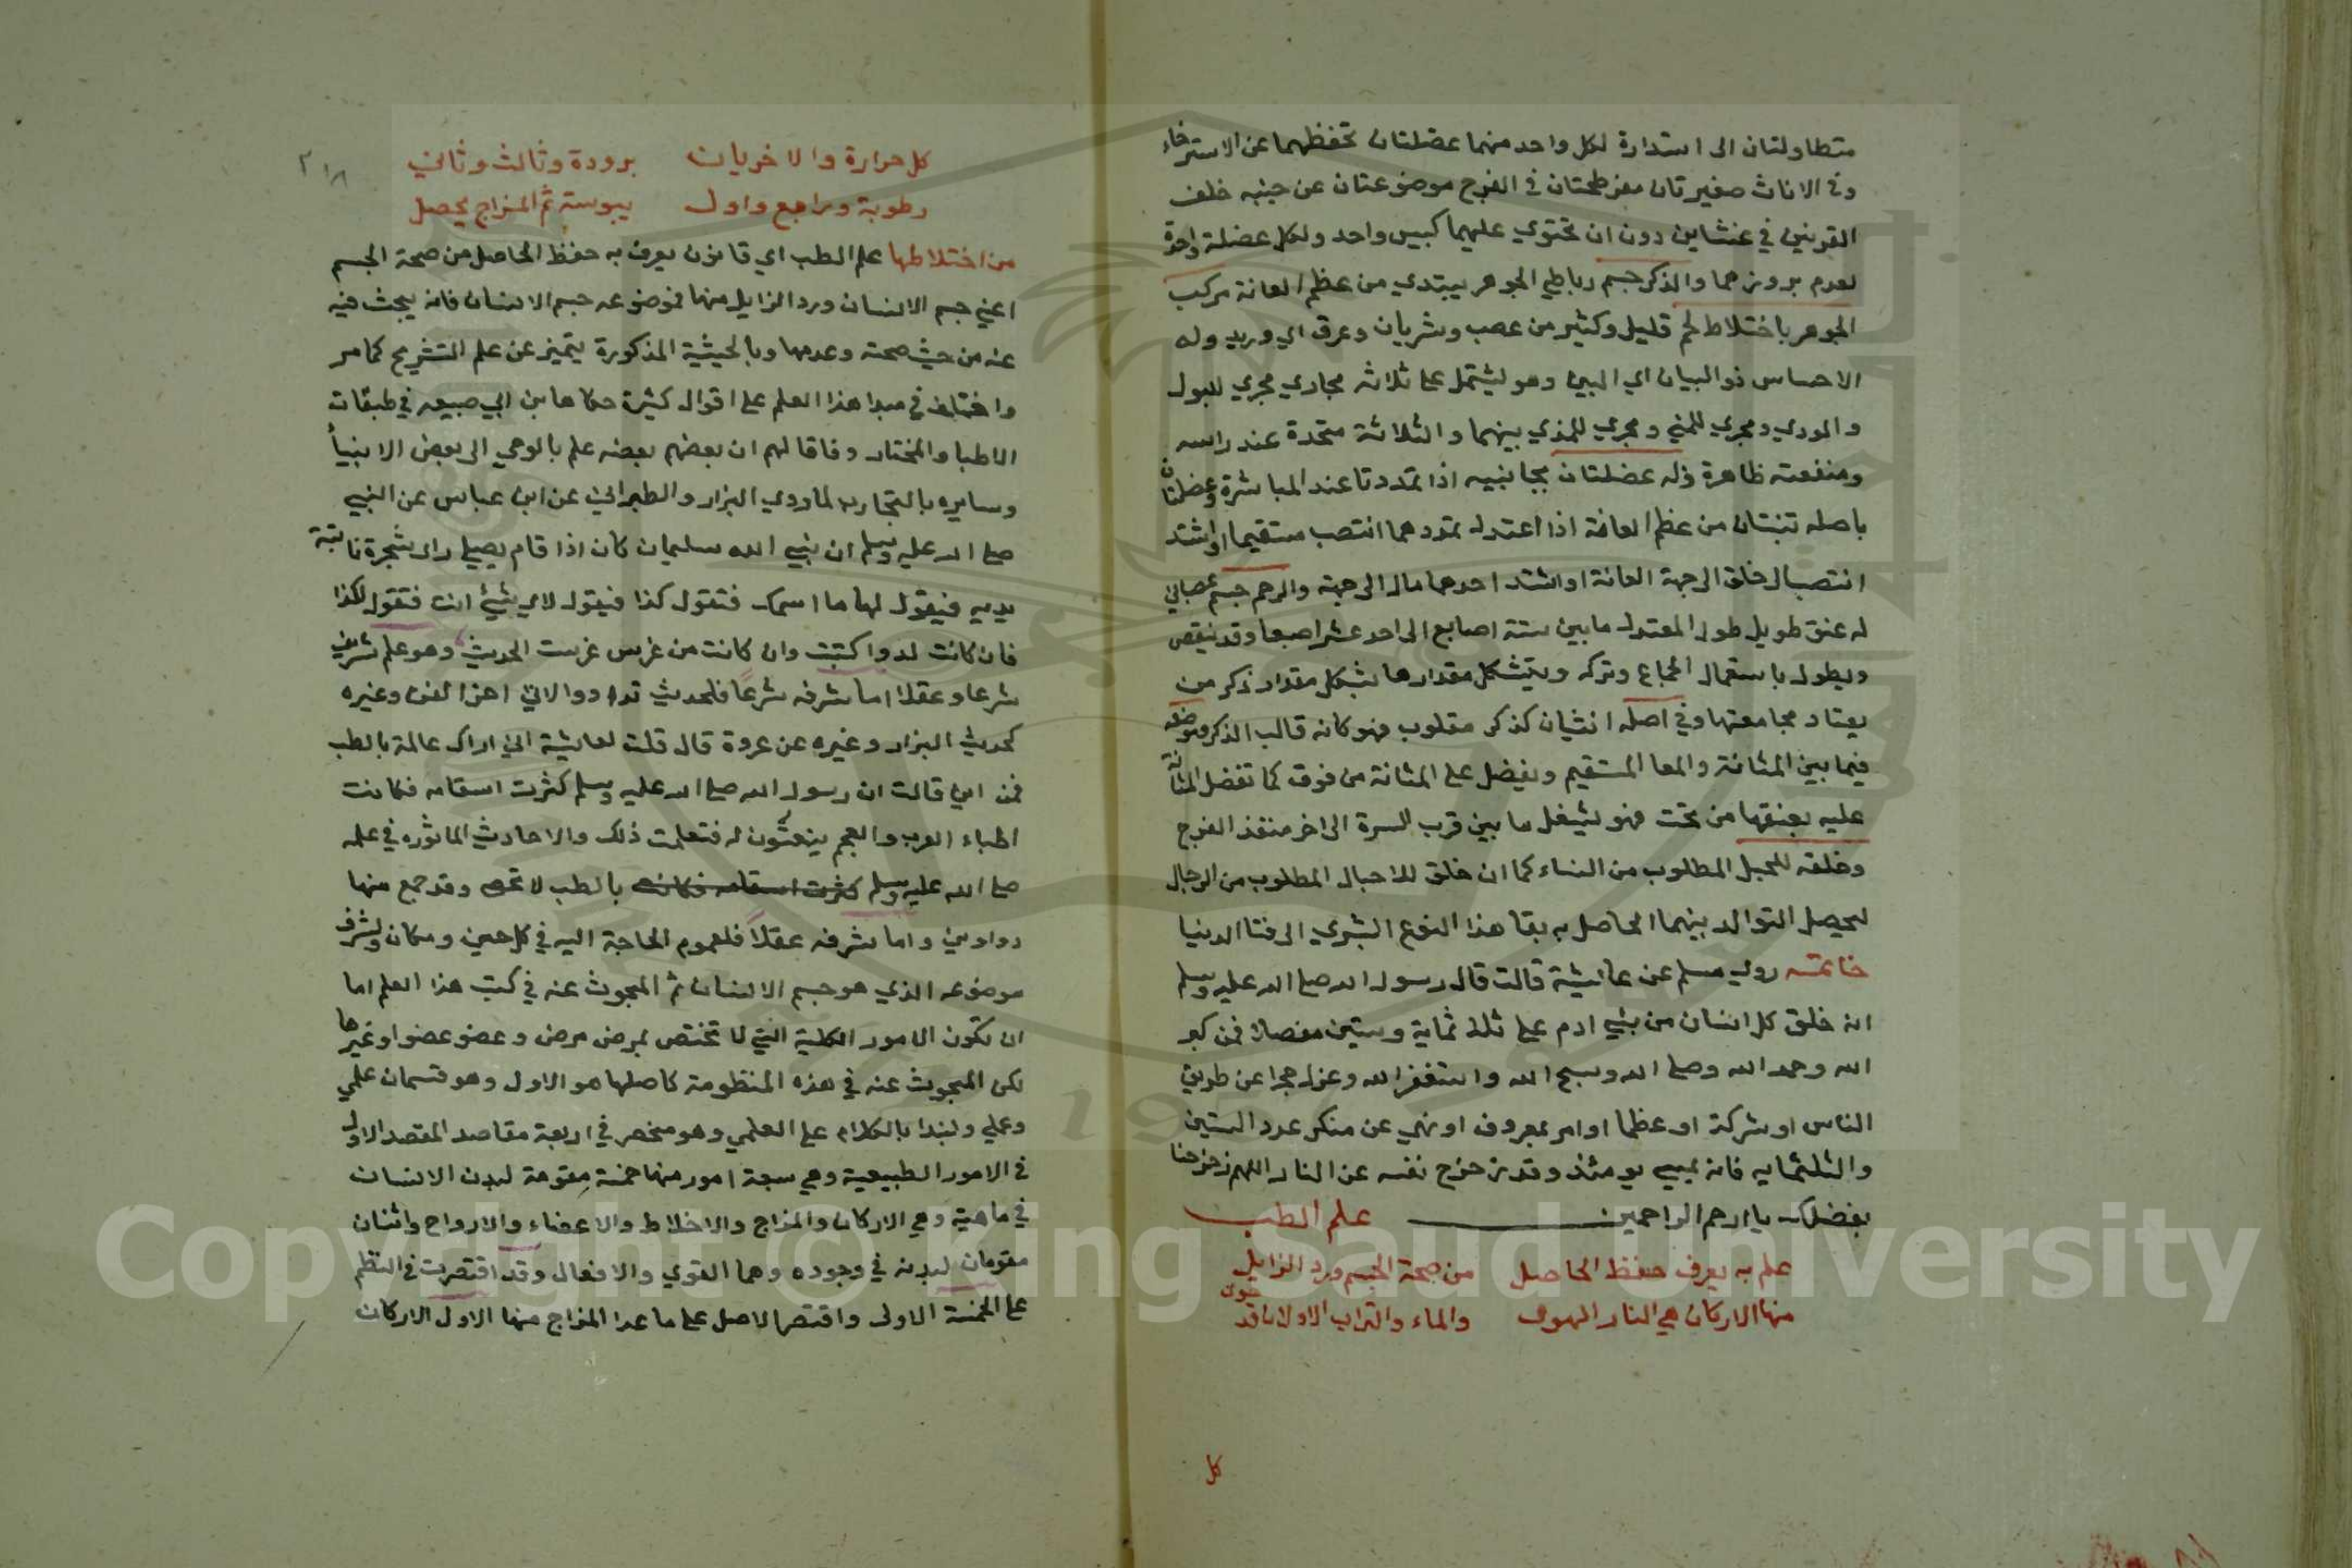 متطاولتان الى استدارة لكل واحد منهما عضلتان تحفظهما عن الاسترخاء
وفى الاناث صغيرتان مفرطحتان فى الفرج موضوعتان عن جنبه خلف
القرنين في غشاين دون ان تحتوي عليهما كيس واحد ولكل عضلة واحدة
لعدم بروزهما والذكر جسم رباطي الجوهر يبتدي من عظم العانة مركب
الجوهر باختلاط لحم قليل وكثير من عصب وشريان وعرق اي وريد وله
الاحساس ذو البيان اي البين وهو يشتمل على ثلاثة مجاري مجري للبول
والودي ومجري للمني ومجري للمذي بينهما والثلاثة متحدة عند راسه
ومنفعته ظاهرة وله عضلتان بجانبيه اذا تمددتا عند المباشرة وعضلتان
باصله تنبتان من عظم العانة اذا اعتدل تمددهما انتصب مستقيما او اشتد
انتصب الى خلق الى جهة العانة او اشتد احدهما مال الى جهته والرحم جسم عصباني
له عنق طويل طوله المعتدل ما بين ستة اصابع الى احد عشر اصبعا وقد ينقص
ويطول باستعمال الجماع وتركه ويتشكل مقدارها بشكل مقدار ذكر من
يعتاد مجامعتها وفي اصله انثيان كذكر مقلوب فهو كانه قالب الذكر موضعه
فيما بين المثانة والمعا المستقيم ويفضل على المثانة من فوق كما تفضل المثانة
عليه بعنقها من تحت فهو يشغل ما بين قرب السرة الى اخر منفذ الفرج
وخلقه للحبل المطلوب من النساء كما ان خلق للاحبال المطلوب من الرجال
ليحصل التوالد بينهما الحاصل به بقا هذا النوع البشري الى فنا الدنيا
خاتمة روي مسلم عن عائشة قالت قال رسول الله صلى الله عليه وسلم
انه خلق كل انسان من بني ادم على ثلثمائة وستين مفصلا فمن كبر
الله وحمد الله وصلى الله وسبح الله واستغفر الله وعزل حجرا عن طريق
الناس او شركة او عظما او امر بمعروف او نهي عن منكر عدد الستين
والثلثمايه فانه يمسي يومئذ وقد زحزح نفسه عن النار اللهم زحزحنا
بفضلك يا ارحم الراحمين علم الطب
علم به يعرف حفظ الحاصل من صحة الجسم ورد الزايل
منها الاركان هي النار الهوى والماء والتراب الاولان قد حوى
كل
٢١٨
كل حرارة والاخريان برودة وثالث وثاني
رطوبة ورابع واول يبوسة ثم المزاج يحصل
من اختلاطها علم الطب اي قانون يعرف به حفظ الحاصل من صحة الجسم
اعني جسم الانسان ورد الزايل منها فموضوعه جسم الانسان فانه يبحث فيه
عنه من حيث صحته وعدمها وبالحيثية المذكورة يتميز عن علم التشريح كما مر
واختلف في مبدا هذا العلم على اقوال كثيرة حكاها ابن ابي صبيعه في طبقات
الاطبا والمختار وفاقا لهم ان بعضهم بعضه علم بالوحي الى بعض الانبيأ
وسايره بالتجارب لما روي البزار والطبراني عن ابن عباس عن النبي
صلى الله عليه وسلم ان نبي الله سليمان كان اذا قام يصلي راى شجرة نابتة
بين يديه فيقول لها ما اسمك فتقول كذا فيقول لاي شيئ انت فتقول لكذا
فان كانت لدوا كتبت وان كانت من غرس غرست الحديث وهو علم شريف
شرعا وعقلا اما شرفه شرعا فلحديث تداووا الاتي اخر الفن وغيره
كحديث البزار وغيره عن عروة قال قلت لعايشة اني اراك عالمة بالطب
فمن اين قالت ان رسول الله صلى الله عليه وسلم كثرت اسقامه فكانت
اطباء العرب والعجم ينعتون له فتعلمت ذلك والاحاديث الماثوره في علمه
صلى الله عليه وسلم كثرت اسقامه فكانت بالطب لا تحصى وقد جمع منها
دواوين واما شرفه عقلا فلعموم الحاجة اليه في كل حين ومكان ولشرف
موضوعه الذي هو جسم الانسان ثم المبحوث عنه في كتب هذا العلم اما
ان تكون الامور الكلية التي لا تختص بمرض مرض وعضو عضو او غيرها
لكن المبحوث عنه في هذه المنظومة كاصلها هو الاول وهو قسمان علمي
وعملي ولنبدا بالكلام على العلمي وهو منحصر في اربعة مقاصد المقصد الاول
فى الامور الطبيعية وهي سبعة امور منها خمسة مقومة لبدن الانسان
في ماهيته وهي الاركان والمزاج والاخلاط والاعضاء والارواح واثنان
مقومان لبدنه في وجوده وهما القوي والافعال وقد اقتصرت في النظم
على الخمسة الاولى واقتصر الاصل على ما عدا المزاج منها الاول الاركان